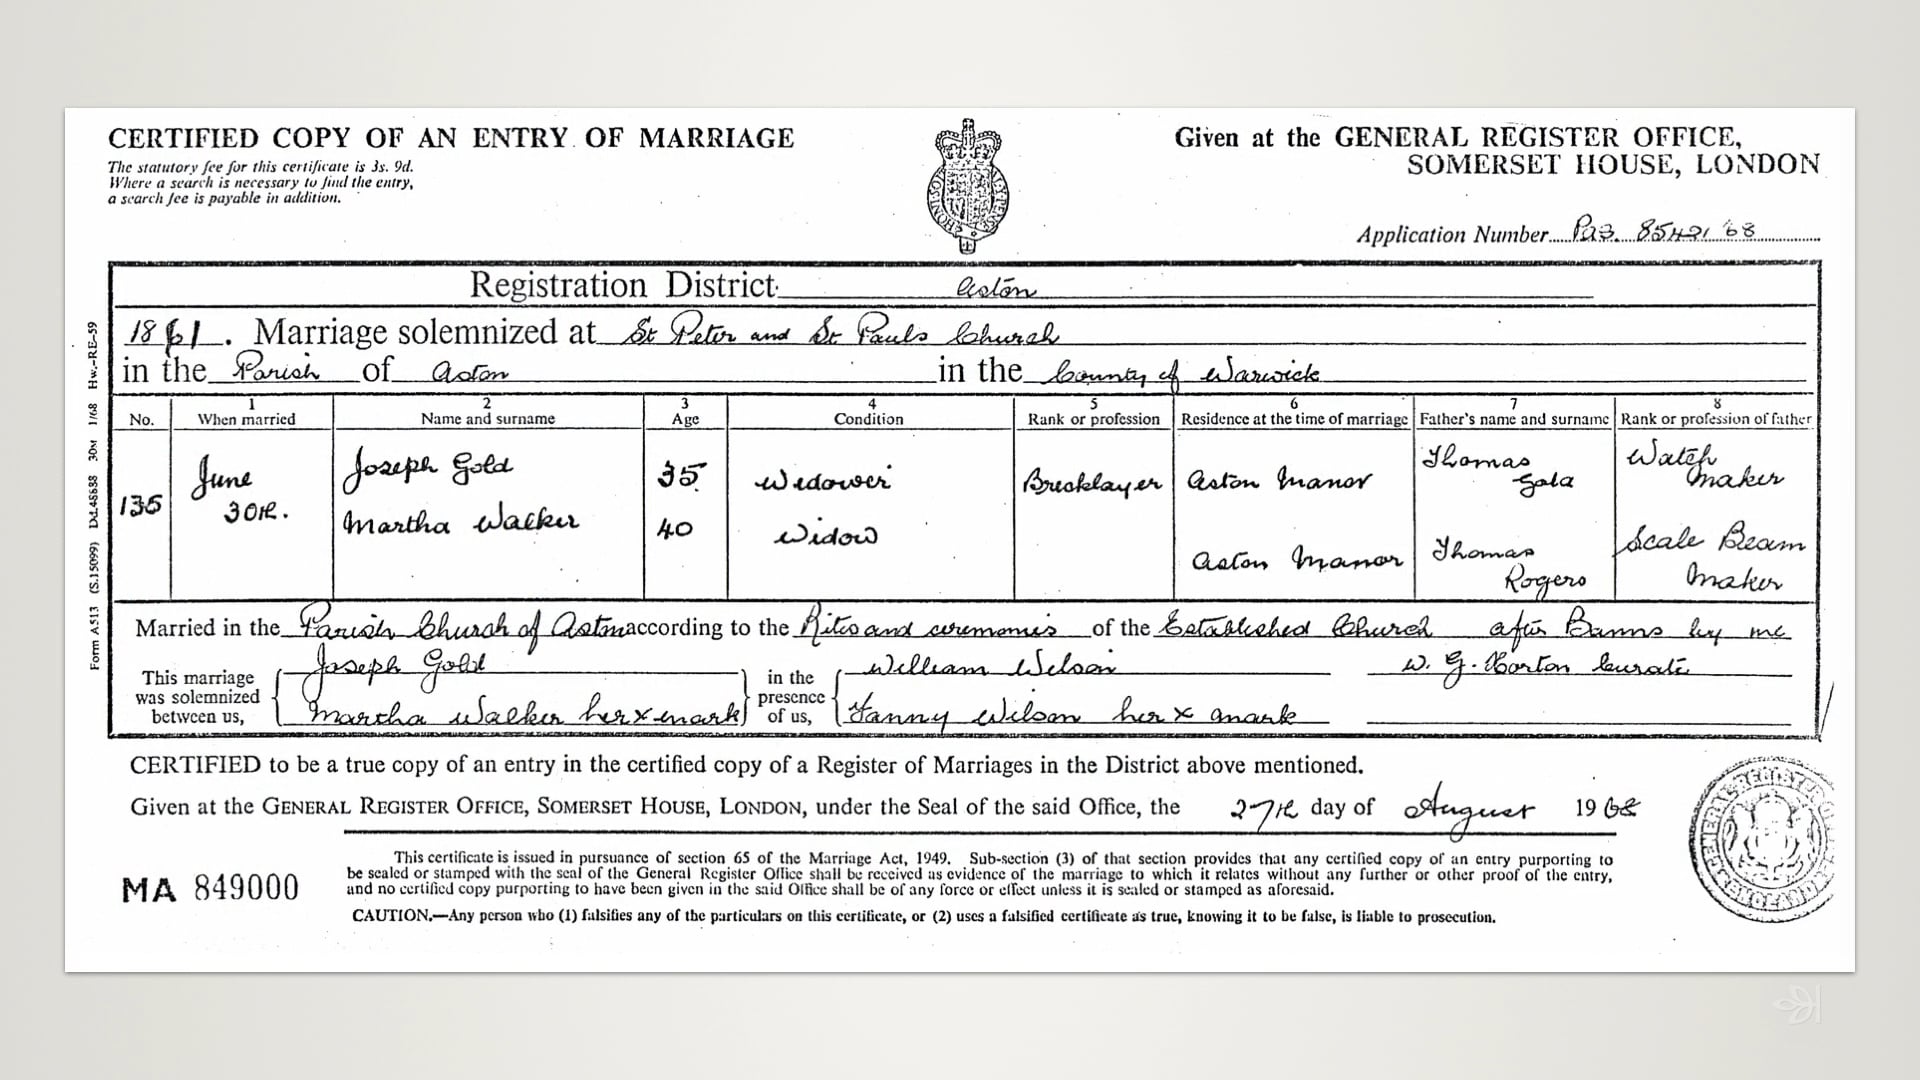 CERTIFIED COPY OF AN ENTRY OF MARRIAGE
The statutory fee for this certificate is 3s. 9d.
Where a search is necessary to find the entry,
a search fee is payable in addition.
Given at the GENERAL REGISTER OFFICE,
SOMERSET HOUSE, LONDON
Application Number Pas.
Registration District Aston
1861. Marriage solemnized at St Peter and St Pauls Church
in the Parish of Aston in the County of Warwick
No. 1 When married 2 Name and surname 3 Age 4 Condition 5 Rank or profession 6 Residence at the time of marriage 7 Father's name and surname 8 Rank or profession of father
135
June
30th.
Joseph Gold
Martha Walker
35
40
Widower
Widow
Bricklayer
Aston Manor
Aston Manor
Thomas
Gold
Thomas
Rogers
Watch
Maker
Scale Beam
Maker
Married in the Parish Church of Aston according to the Rites and ceremonies of the Established Church after Banns by me
This marriage
was solemnized
between us,
Joseph Gold
Martha Walker her x mark
in the
presence
of us,
William Wilson
Fanny Wilson her x mark
W. G. Horton Curate
CERTIFIED to be a true copy of an entry in the certified copy of a Register of Marriages in the District above mentioned.
Given at the GENERAL REGISTER OFFICE, SOMERSET HOUSE, LONDON, under the Seal of the said Office, the 27th day of August 1968
MA 849000
This certificate is issued in pursuance of section 65 of the Marriage Act, 1949. Sub-section (3) of that section provides that any certified copy of an entry purporting to
be sealed or stamped with the seal of the General Register Office shall be received as evidence of the marriage to which it relates without any further or other proof of the entry,
and no certified copy purporting to have been given in the said Office shall be of any force or effect unless it is sealed or stamped as aforesaid.
CAUTION.—Any person who (1) falsifies any of the particulars on this certificate, or (2) uses a falsified certificate as true, knowing it to be false, is liable to prosecution.
Form A513 (S.15099) Dd.48638 30M 1/68 Hw.-RE-59